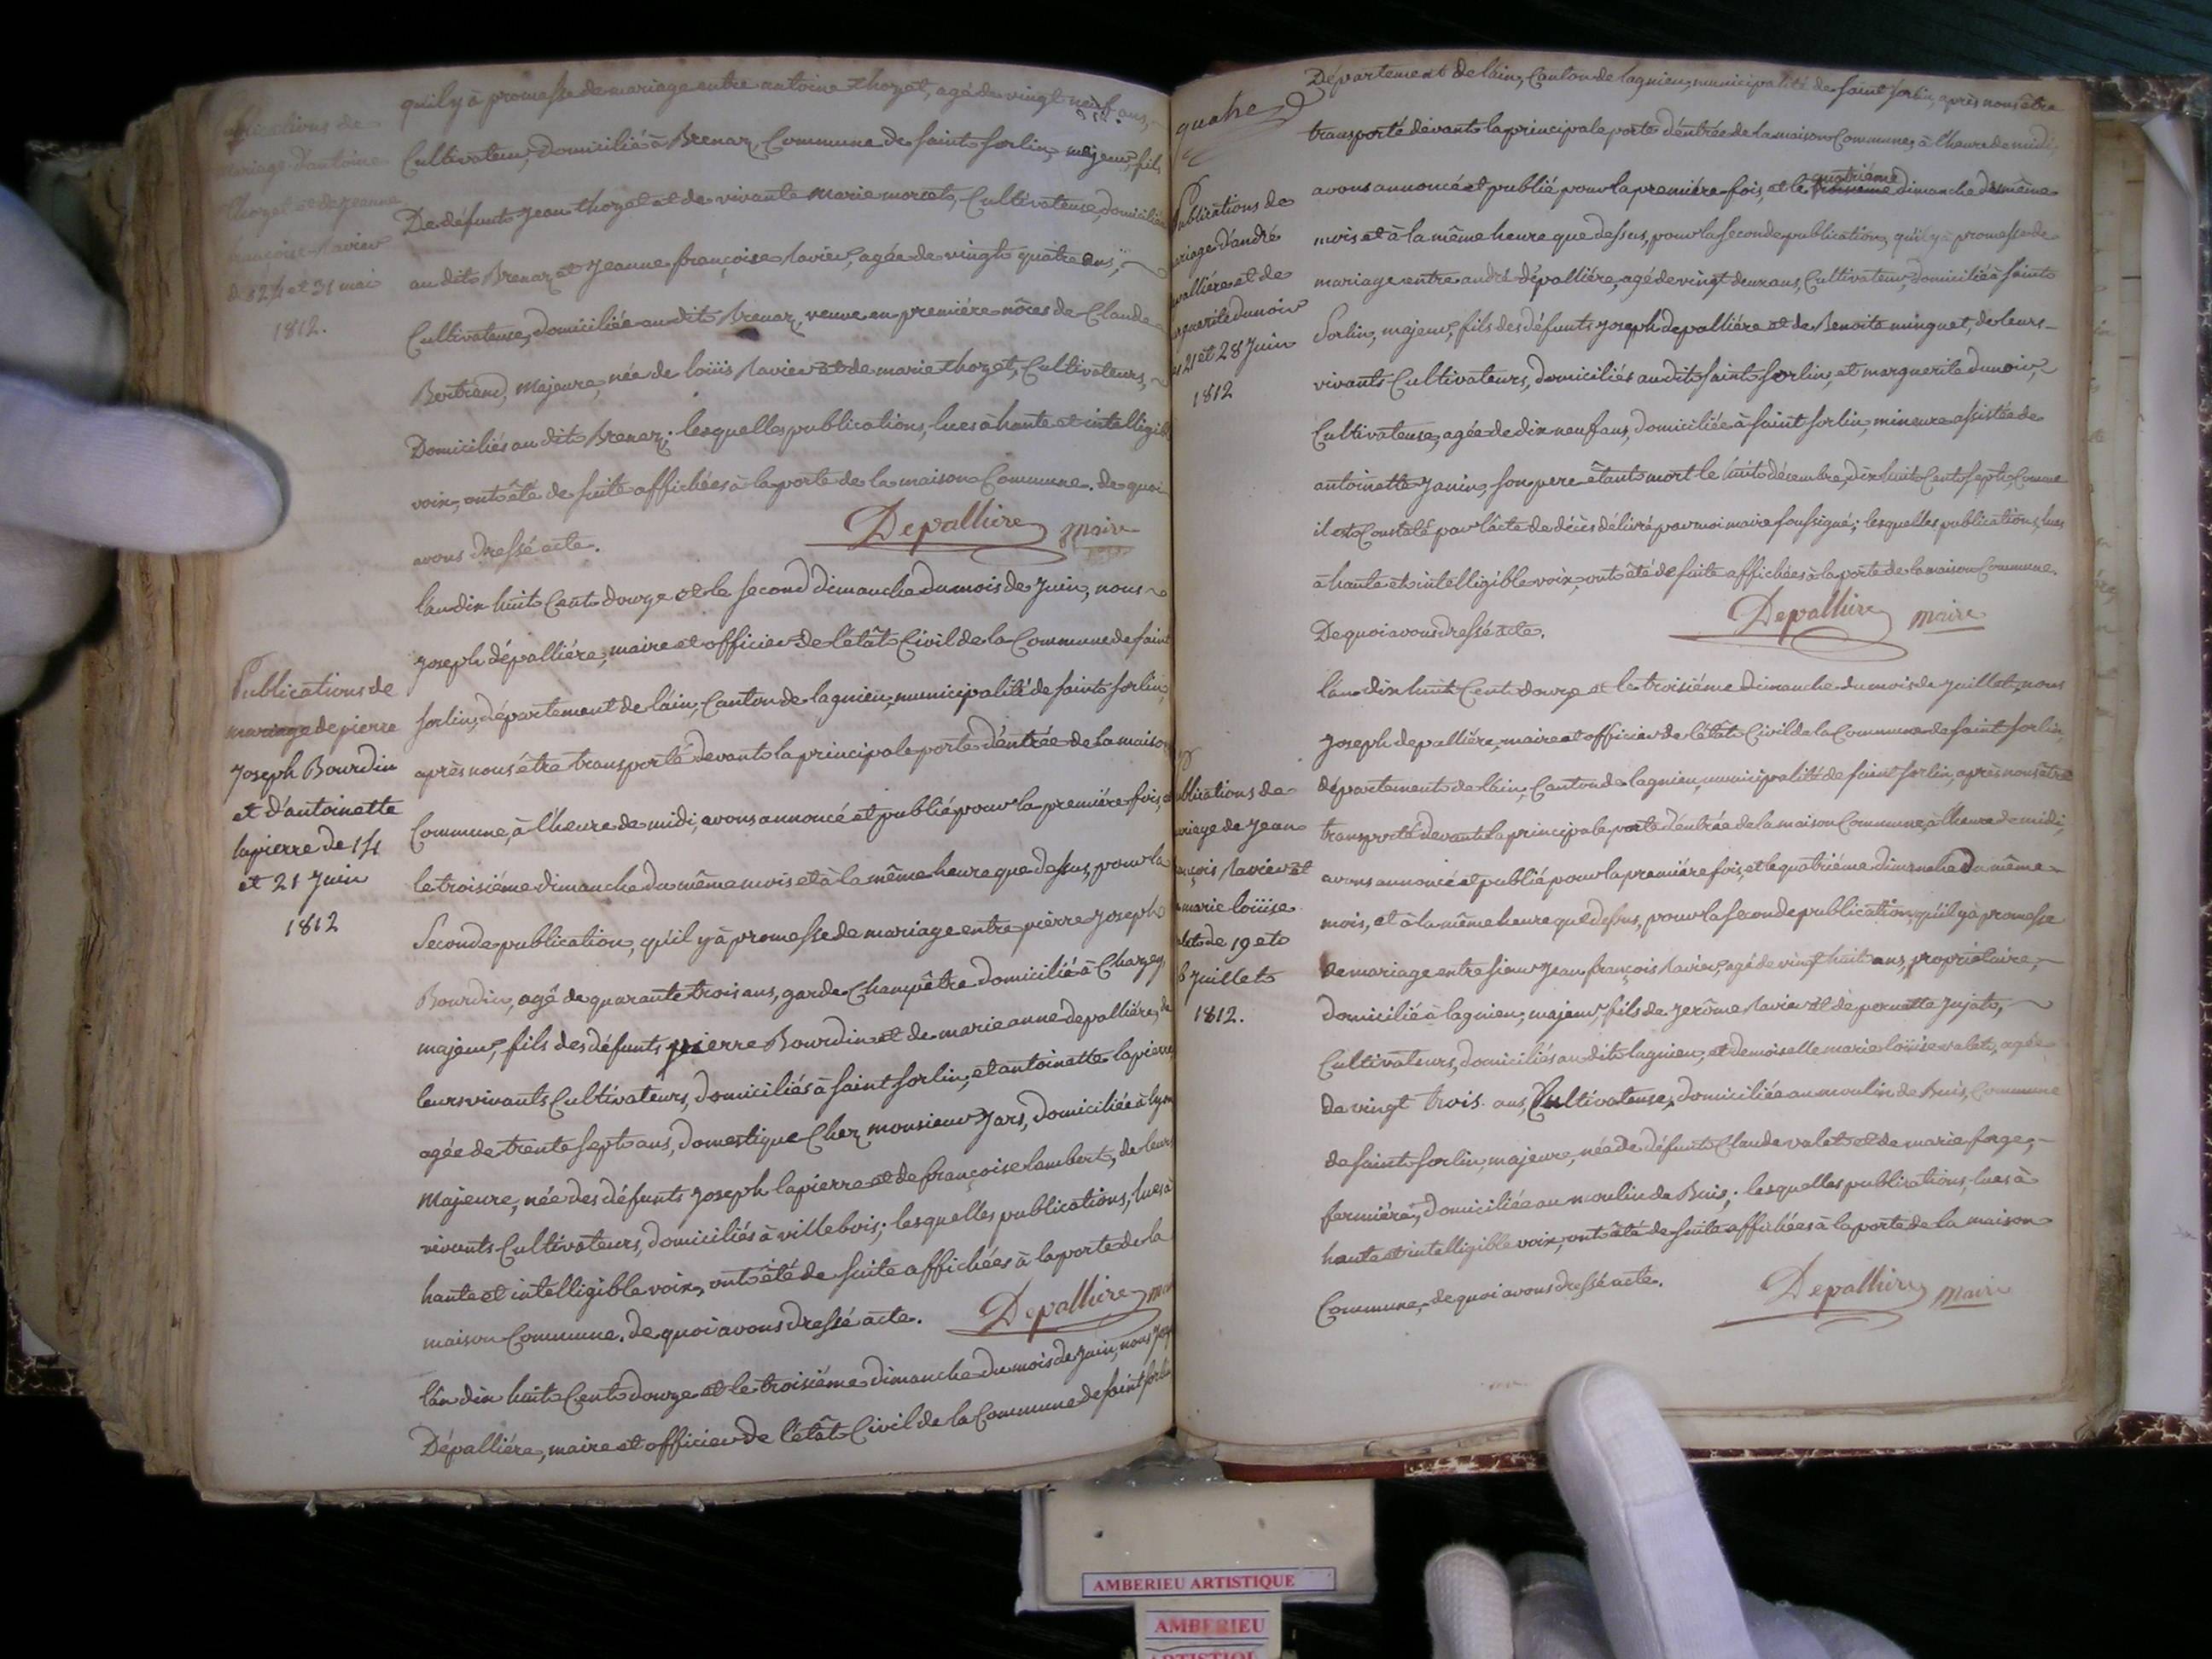 Publications de
mariage d'antoine
thozet et de jeanne
françoise Ravier
des 24 et 31 mai
1812.
qu'il y à promesse de mariage entre antoine thozet, agé de vingt neuf ans,
Cultivateur, domicilié à Brenaz, Commune de saint sorlin, majeur, fils
De défunt jean thozet et de vivante marie morcel, Cultivateuse, domiciliée
au dit Brenaz et jeanne françoise Ravier, agée de vingt quatre ans,
Cultivateuse, domiciliée au dit Brenaz, veuve en premiére nôces de Claude
Bertrand, majeure, née de loüis Ravier et de marie thozet, Cultivateurs,
Domiciliés au dit Brenaz; lesquelles publications, lues à haute et intelligible
voix, ont été de suite affichées à la porte de la maison Commune. de quoi
avons dressé acte. Depalliere maire
Publications de
mariage de pierre
joseph Bourdin
et d'antoinette
lapierre de 14
et 21 juin
1812
l'an dix huit Cent douze et le second dimanche du mois de juin, nous
joseph dépalliére, maire et officier de l'étât Civil de la Commune de saint
sorlin, département de l'ain, Canton de lagnieu, municipalité de saint sorlin,
après nous être transporté devant la principale porte d'entrée de la maison
Commune, à l'heure de midi, avons annoncé et publié pour la premiére fois, et
le troisiéme dimanche du même mois et à la même heure que dessus, pour la
Seconde publication, qu'il y à promesse de mariage entre pièrre joseph
Bourdin, agé de quarante trois ans, garde Champêtre domicilié à Chazey,
majeur, fils des défunts pierre Bourdin et de marie anne depalliére, de
leurs vivants Cultivateurs, domiciliés à saint sorlin; et antoinette lapierre
agée de trente sept ans, domestique Chez monsieur Jars, domiciliée à lyon
Majeure, née des défunts joseph lapierre et de françoise lambert, de leurs
vivants Cultivateurs, domiciliés à villebois; lesquelles publications, lues à
haute et intelligible voix, ont été de suite affichées à la porte de la
maison Commune. de quoi avons dressé acte. Depalliere maire
l'an dix huit Cent douze et le troisiéme dimanche du mois de juin, nous joseph
Dépalliére, maire et officier de l'étât Civil de la Commune de saint sorlin
quatre
Département de l'ain, Canton de lagnieu, municipalité de saint sorlin, après nous être
transporté devant la principale porte d'entrée de la maison Commune, à l'heure de midi,
quatriéme
avons annoncé et publié pour la premiére fois, et le troisieme dimanche du même
mois et à la même heure que dessus, pour la seconde publication, qu'il y à promesse de
mariage entre andré dépalliére, agé de vingt deux ans, Cultivateur, domicilié à saint
Sorlin, majeur, fils des défunts joseph depalliére et de Benoite minguet, de leurs
vivants Cultivateurs, domiciliés au dit saint sorlin, et marguerite dunoir,
Cultivateuse, agée de dix neuf ans, domiciliée à saint sorlin, mineure assistée de
antoinette janin, son pere étant mort le huit décembre, dix huit Cent sept, Comme
il est Constaté par l'acte de décès délivré par moi maire soussigné; lesquelles publications, lues
à haute et intelligible voix, ont été de suite affichées à la porte de la maison Commune.
De quoi avons dressé acte. Depalliere maire
Publications de
mariage d'andré
depalliére et de
marguerite dunoir
des 21 et 28 juin
1812
l'an dix huit Cent douze et le troisiéme dimanche du mois de juillet, nous
joseph depalliére, maire et officier de l'étât Civil de la Commune de saint sorlin,
département de l'ain, Canton de lagnieu, municipalité de saint sorlin, après nous être
transporté devant la principale porte d'entrée de la maison Commune, à l'heure de midi,
avons annoncé et publié pour la premiére fois, et le quatriéme dimanche du même
mois, et à la même heure que dessus, pour la seconde publication, qu'il y à promesse
de mariage entre sieur jean françois Ravier, agé de vingt huit ans, propriétaire,
domicilié à lagnieu, majeur, fils de jerôme Ravier et de pernette jujat,
Cultivateurs, domiciliés au dit lagnieu, et demoiselle marie loüise valet, agée
de vingt trois ans, Cultivateuse, domiciliée au moulin de Buis, Commune
de saint sorlin, majeure, née de défunt Claude valet et de marie forge,
fermiére, domiciliée au moulin de Buis; lesquelles publications, lues à
haute et intelligible voix, ont été de suite affichées à la porte de la maison
Commune, de quoi avons dressé acte. Depalliere maire
Publications de
mariage de jean
françois Ravier et
marie loüise
valet de 19 et
juillet
1812.
AMBERIEU ARTISTIQUE
AMBERIEU
ARTISTIQUE